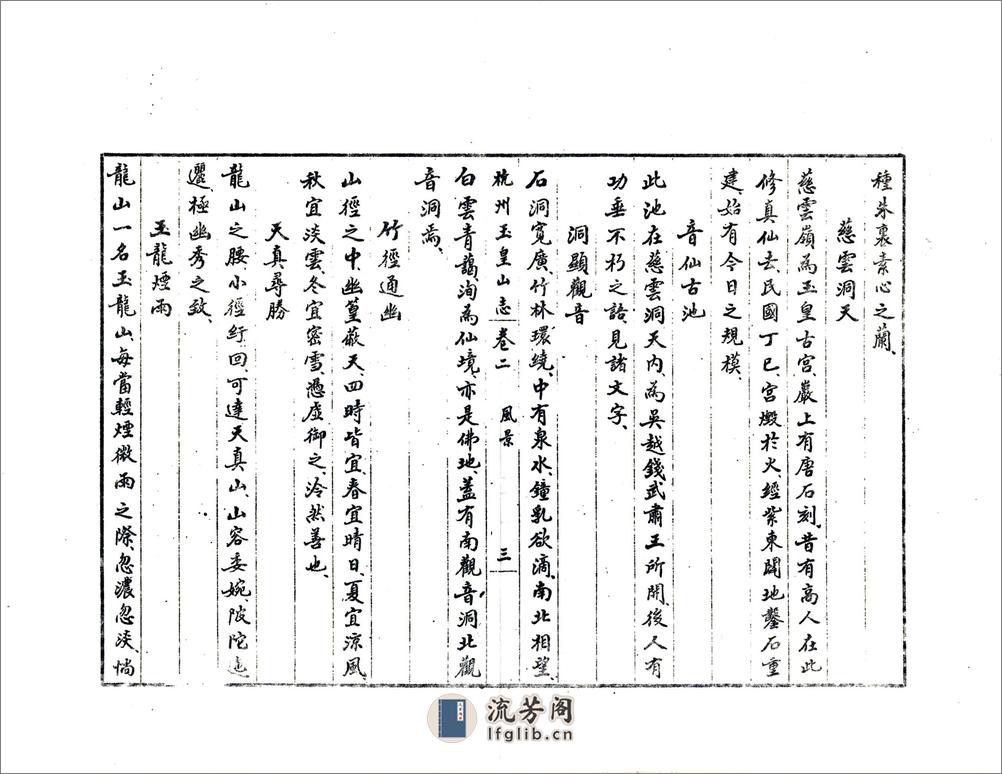 種朱裏素心之蘭、
慈雲洞天
慈雲嶺為玉皇古宮、巖上有唐石刻、昔有高人在此
修真仙去、民國丁巳、宮燬於火、經紫東闢地鑿石重
建、始有今日之規模、
音仙古池
此池在慈雲洞天內、為吳越錢武肅王所開、後人有
功垂不朽之語見諸文字、
洞顯觀音
石洞寬廣、竹林環繞、中有泉水、鐘乳欲滴、南北相望、
杭州玉皇山志 卷二 風景 三
白雲青藹、洵為仙境、亦是佛地、蓋有南觀音洞北觀
音洞焉、
竹徑通幽
山徑之中、幽篁蔽天、四時皆宜、春宜晴日、夏宜涼風、
秋宜淡雲、冬宜密雪、憑虛御之、泠然善也、
天真尋勝
龍山之腰、小徑紆回、可達天真山、山容委婉、陂陀迆
邐、極幽秀之致、
玉龍煙雨
龍山一名玉龍山、每當輕煙微雨之際、忽濃忽淡、惝
流芳阁
lfglib.cn